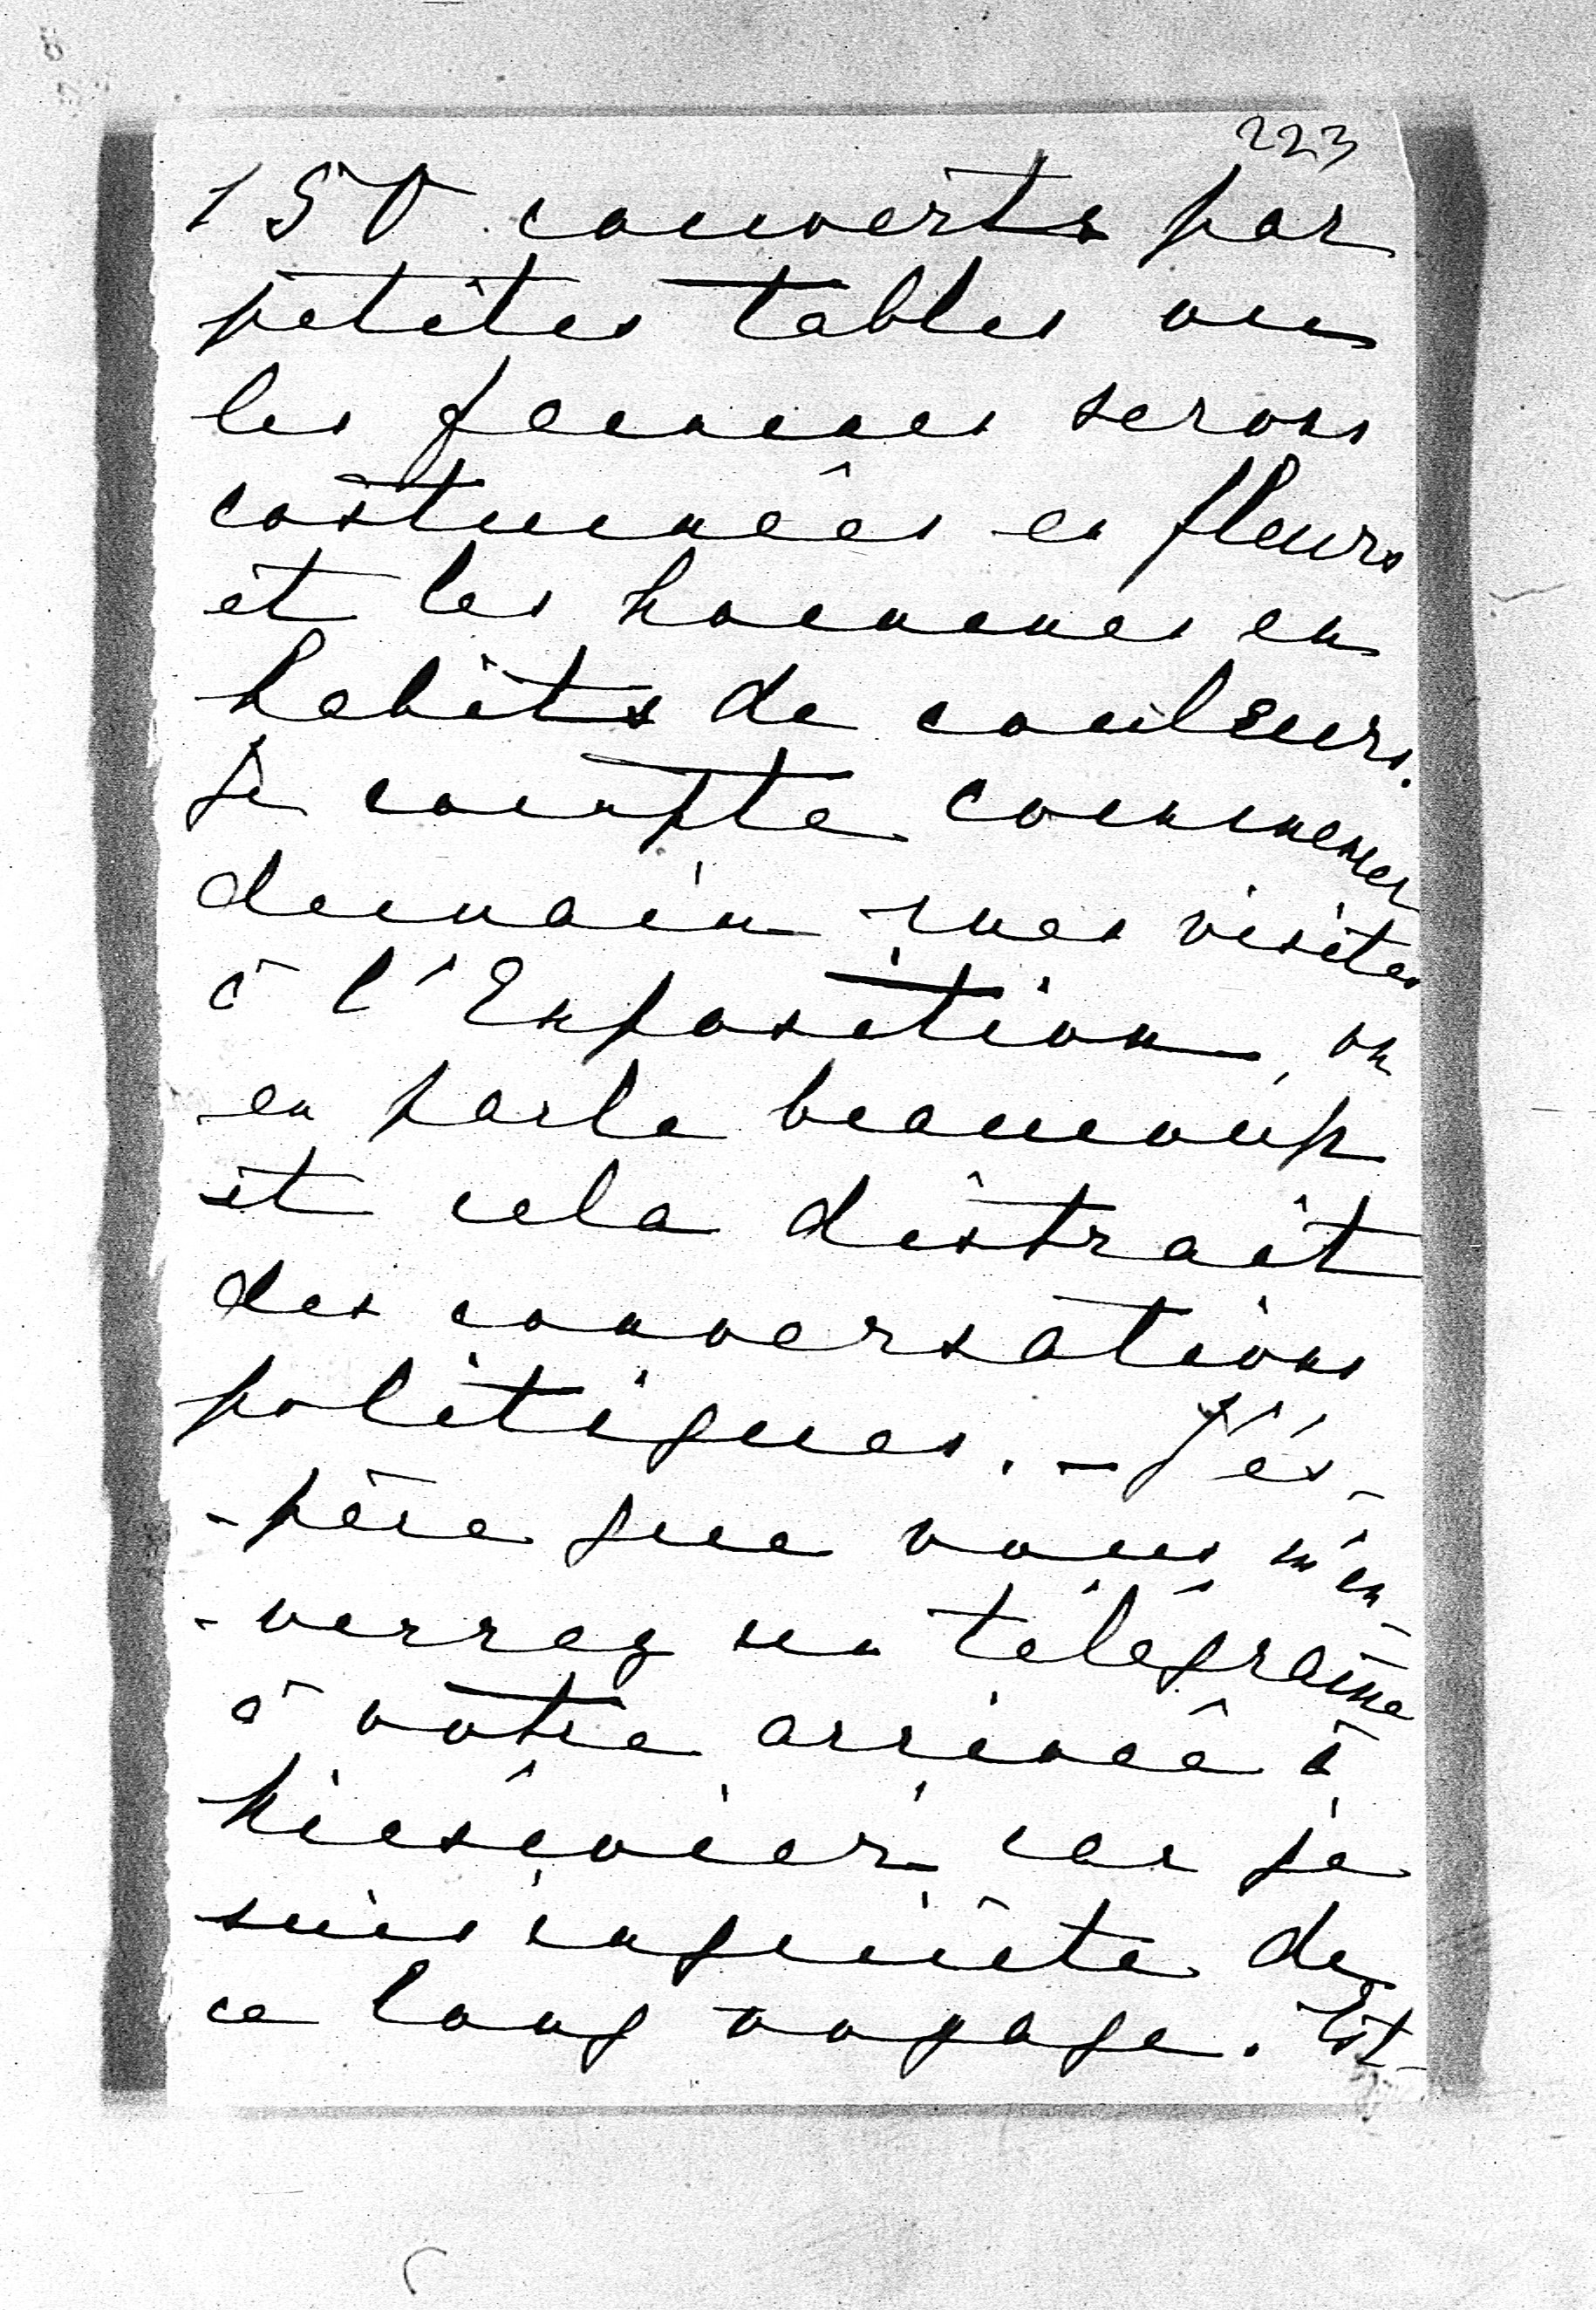 223
150 couverts par
petites tables ou
les femmes serons
costumées en fleurs
et les hommes en
habits de couleurs.
Je compte commencer
demain mes visites
à l'Exposition, on
en parle beaucoup
et cela distrait
des conversations
politiques. - J'és-
-père que vous m'en-
-verrez un télégrame
à votre arrivée à
car je
suis inquiète de
ce long voyage.